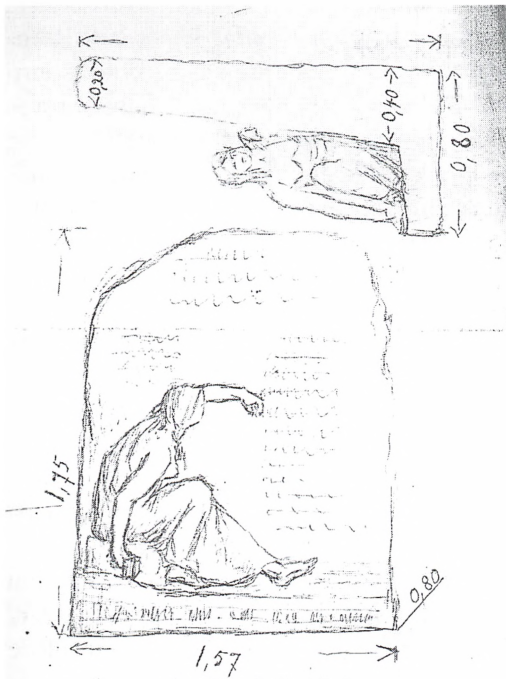 0,20
0,40
0,80
1,75
0,80
1,57